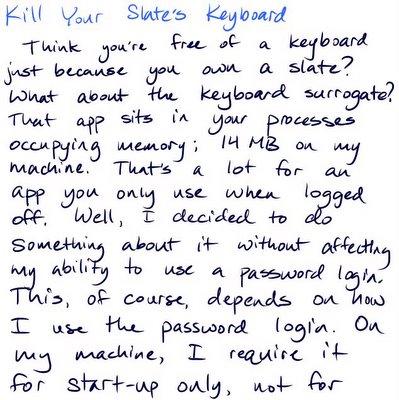 Kill Your Slate's Keyboard
Think you're free of a keyboard
just because you own a slate?
What about the keyboard surrogate?
That app sits in your processes
occupying memory; 14 MB on my
machine. That's a lot for an
app you only use when logged
off. Well, I decided to do
something about it without affecting
my ability to use a password login.
This, of course, depends on how
I use the password login. On
my machine, I require it
for start-up only, not for